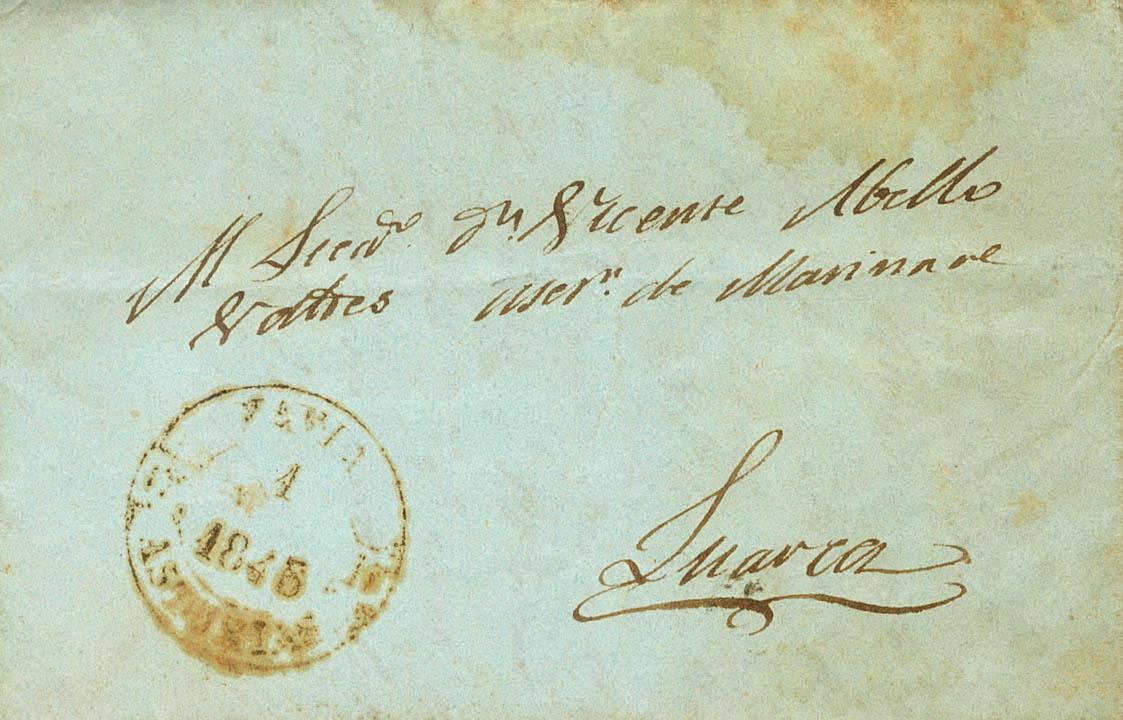 Al Licdo. Dn. Vicente Abello
Valdes aser. de Marina de
Luarca
NAVIA
1
1845
ASTURIAS